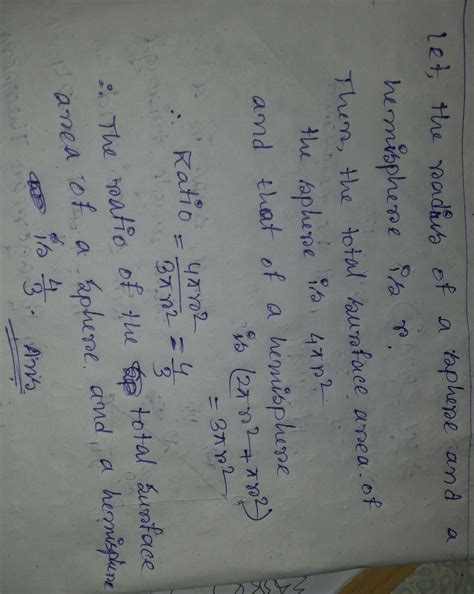 Let, the radius of a sphere and a
hemisphere is r.
Then, the total surface area of
the sphere is 4πr²
and that of a hemisphere
is (2πr² + πr²)
= 3πr²
∴ Ratio = 4πr²/3πr² = 4/3
∴ The ratio of the total surface
area of a sphere and a hemisphere
is 4/3. Ans